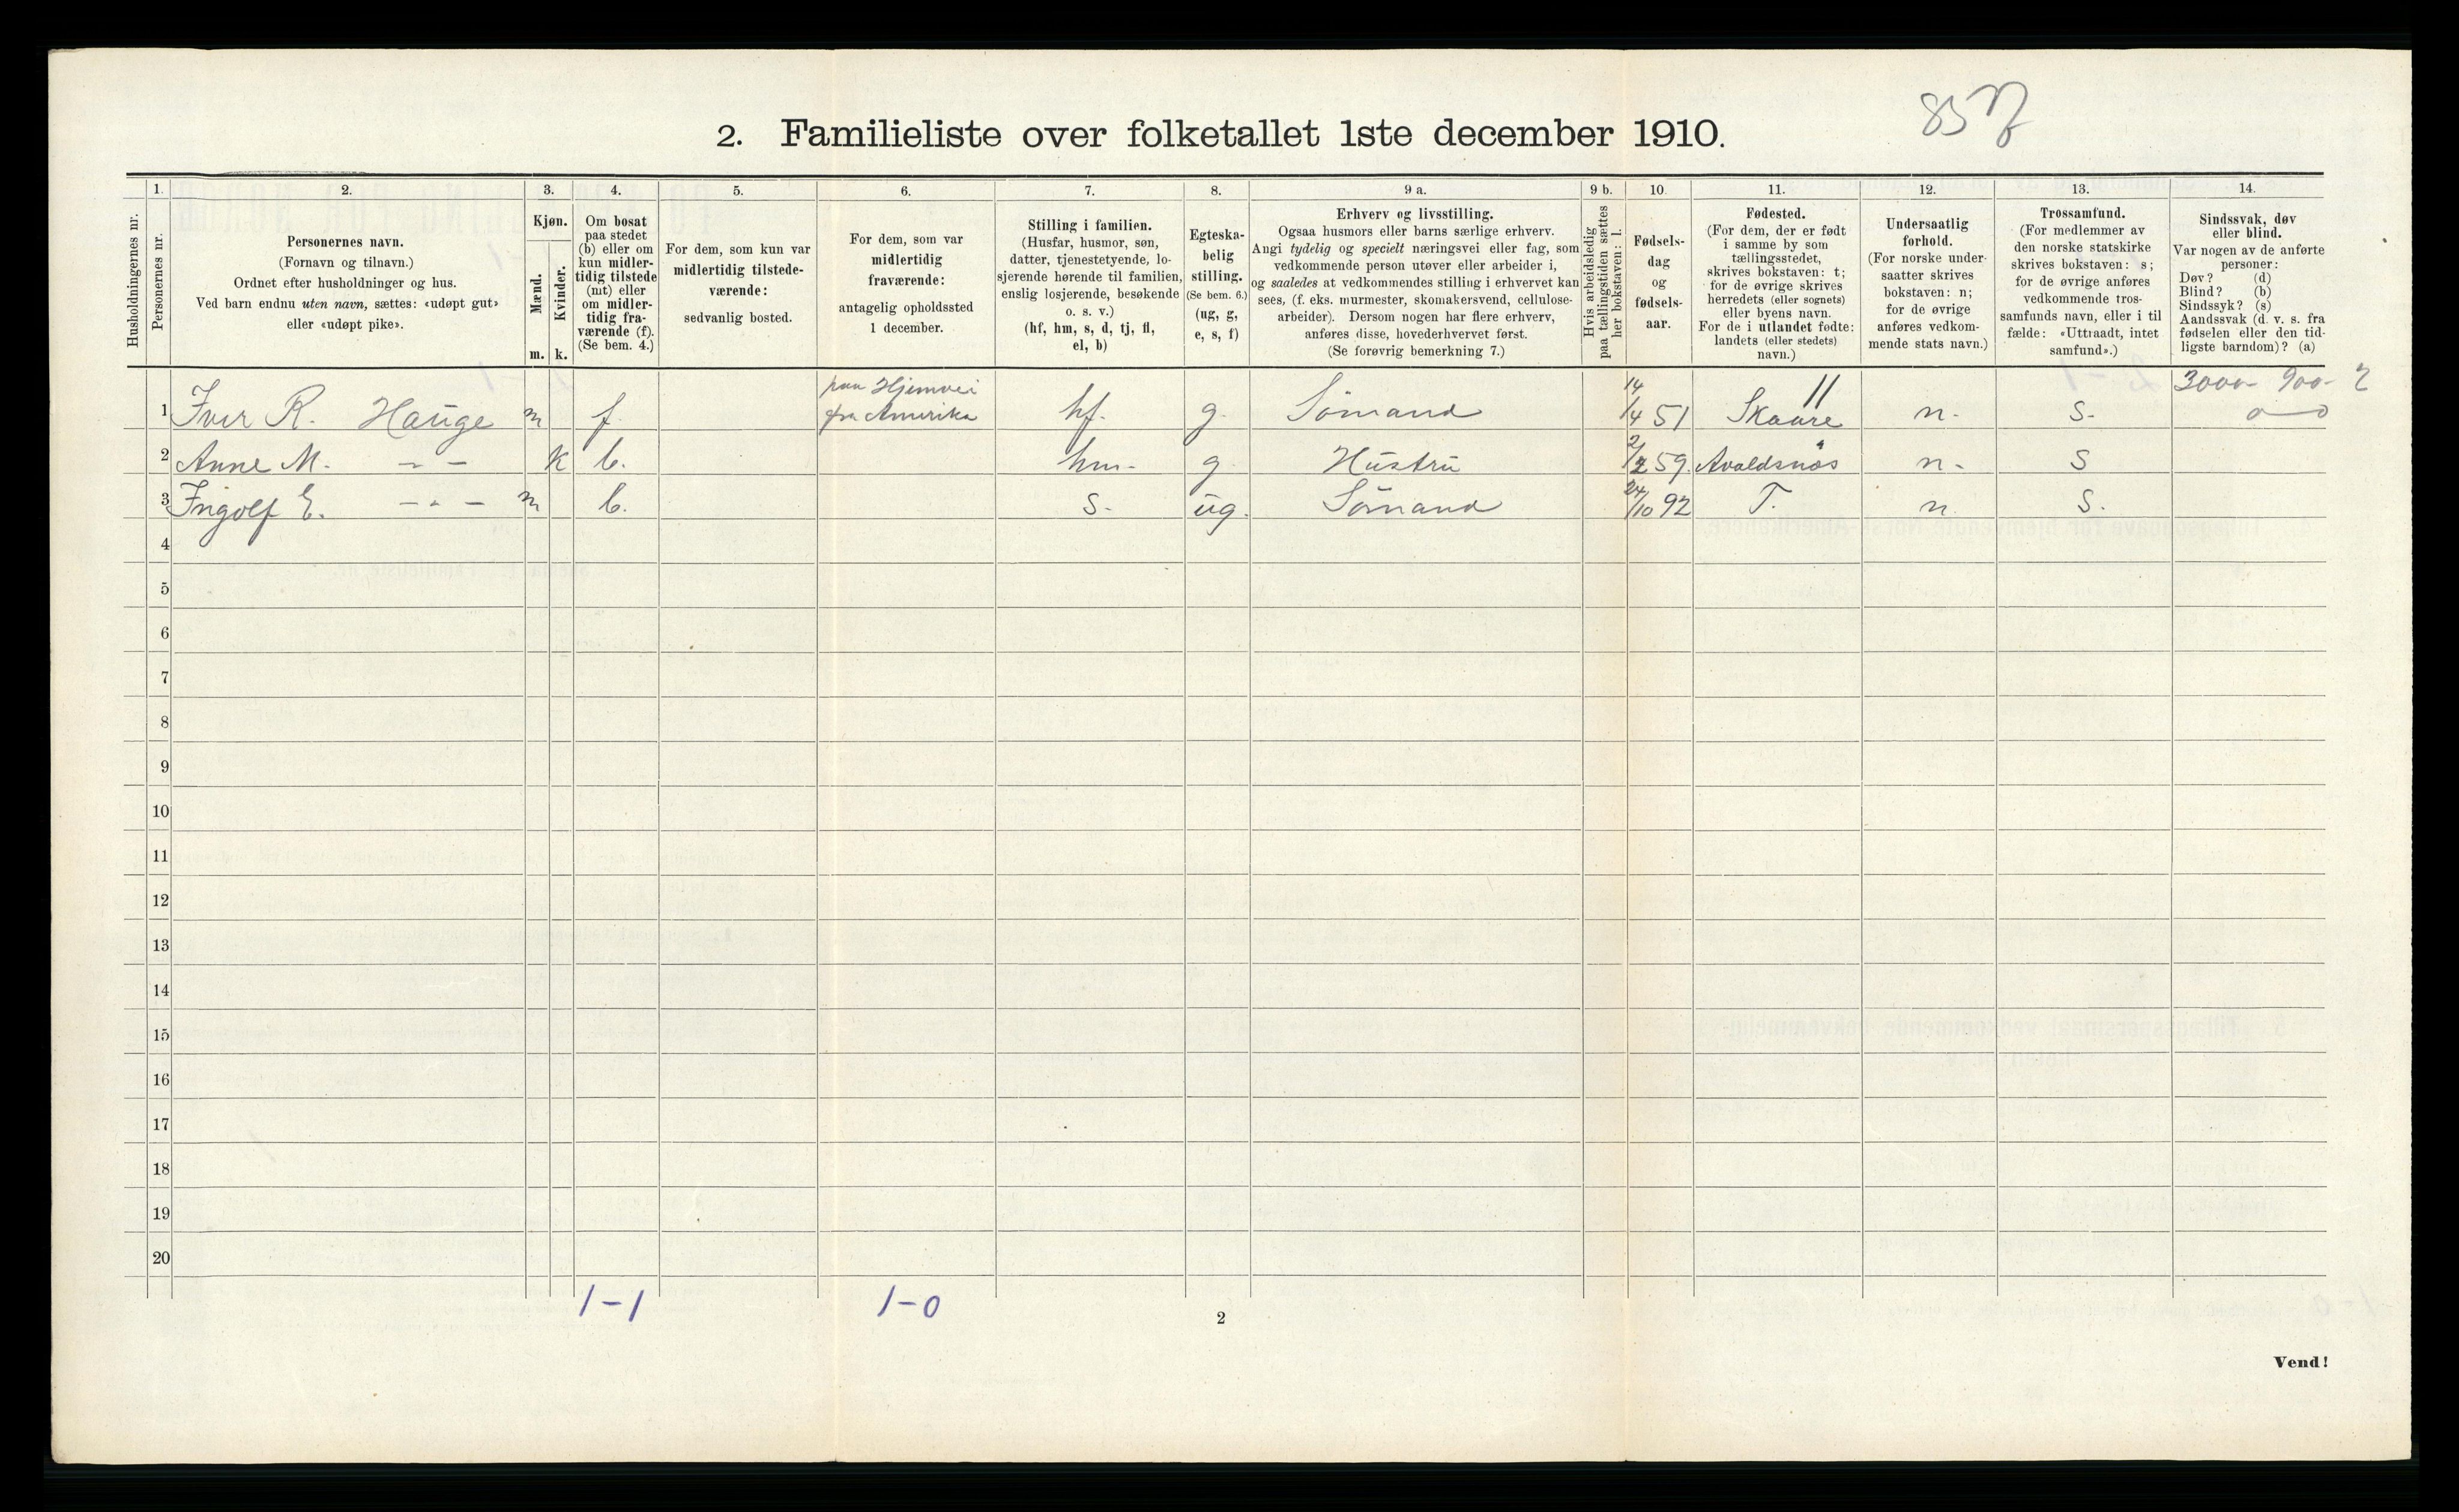 2. Familieliste over folketallet 1ste december 1910.
1. 2. 3. 4. 5. 6. 7. 8. 9 a. 9 b. 10. 11. 12. 13. 14.
Husholdningernes nr.
Personernes nr.
Personernes navn.
(Fornavn og tilnavn.)
Ordnet efter husholdninger og hus.
Ved barn endnu uten navn, sættes: «udøpt gut»
eller «udøpt pike».
Kjøn.
Mænd.
Kvinder.
m. k.
Om bosat
paa stedet
(b) eller om
kun midler-
tidig tilstede
(mt) eller
om midler-
tidig fra-
værende (f).
(Se bem. 4.)
For dem, som kun var
midlertidig tilstede-
værende:
sedvanlig bosted.
For dem, som var
midlertidig
fraværende:
antagelig opholdssted
1 december.
Stilling i familien.
(Husfar, husmor, søn,
datter, tjenestetyende, lo-
sjerende hørende til familien,
enslig losjerende, besøkende
o. s. v.)
(hf, hm, s, d, tj, fl,
el, b)
Egteska-
belig
stilling.
(Se bem. 6.)
(ug, g,
e, s, f)
Erhverv og livsstilling.
Ogsaa husmors eller barns særlige erhverv.
Angi tydelig og specielt næringsvei eller fag, som
vedkommende person utøver eller arbeider i,
og saaledes at vedkommendes stilling i erhvervet kan
sees, (f. eks. murmester, skomakersvend, cellulose-
arbeider). Dersom nogen har flere erhverv,
anføres disse, hovederhvervet først.
(Se forøvrig bemerkning 7.)
Hvis arbeidsledig
paa tællingstiden sættes
her bokstaven: l.
Fødsels-
dag
og
fødsels-
aar.
Fødested.
(For dem, der er født
i samme by som
tællingsstedet,
skrives bokstaven: t;
for de øvrige skrives
herredets (eller sognets)
eller byens navn.
For de i utlandet fødte:
landets (eller stedets)
navn.)
Undersaatlig
forhold.
(For norske under-
saatter skrives
bokstaven: n;
for de øvrige
anføres vedkom-
mende stats navn.)
Trossamfund.
(For medlemmer av
den norske statskirke
skrives bokstaven: s;
for de øvrige anføres
vedkommende tros-
samfunds navn, eller i til-
fælde: «Uttraadt, intet
samfund».)
Sindssvak, døv
eller blind.
Var nogen av de anførte
personer:
Døv? (d)
Blind? (b)
Sindssyk? (s)
Aandssvak (d. v. s. fra
fødselen eller den tid-
ligste barndom)? (a)
paa Hjemvei 3000- 900- 2
1 Iver R. Hauge m f. fra Amerika hf. g. Sömand 14/4 51 Skaare n. s. 0 0
2 Anne M. - - k b. hm. g. Hustru 2/2 59. Avaldsnæs n. s
3 Ingolf E. - " - m b. s. ug. Sömand 24/10 92 T. n s.
4
5
6
7
8
9
10
11
12
13
14
15
16
17
18
19
20
1-1 1-0
2
Vend!